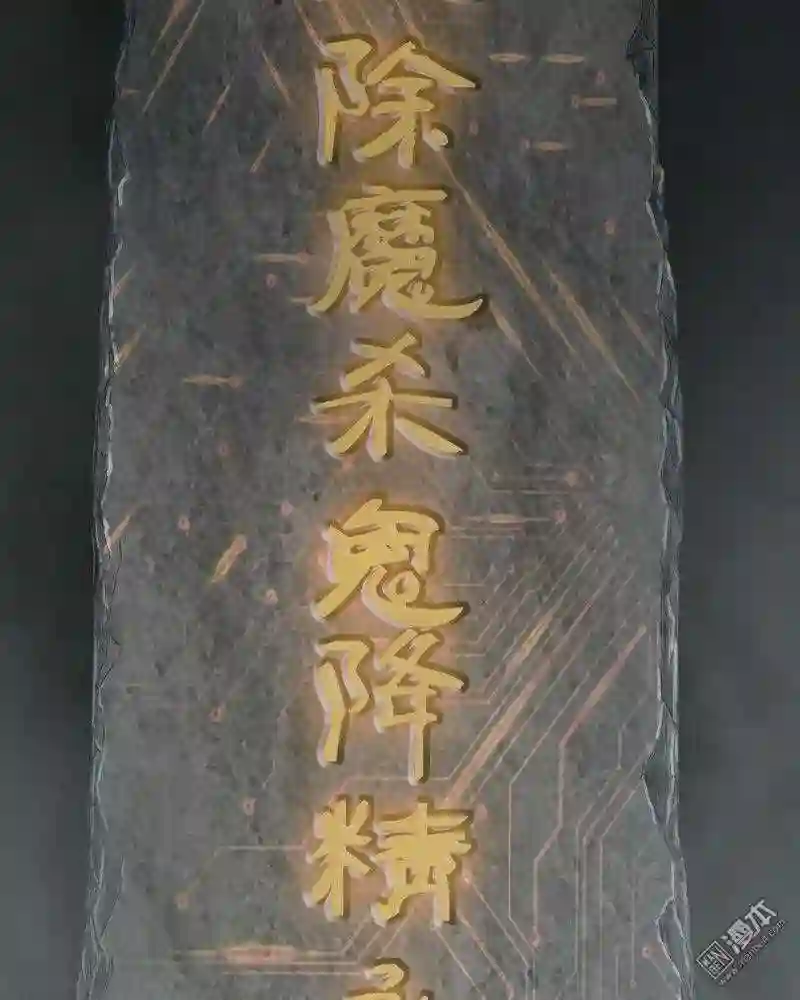 除魔杀鬼降精
漫本
MAN
BEN